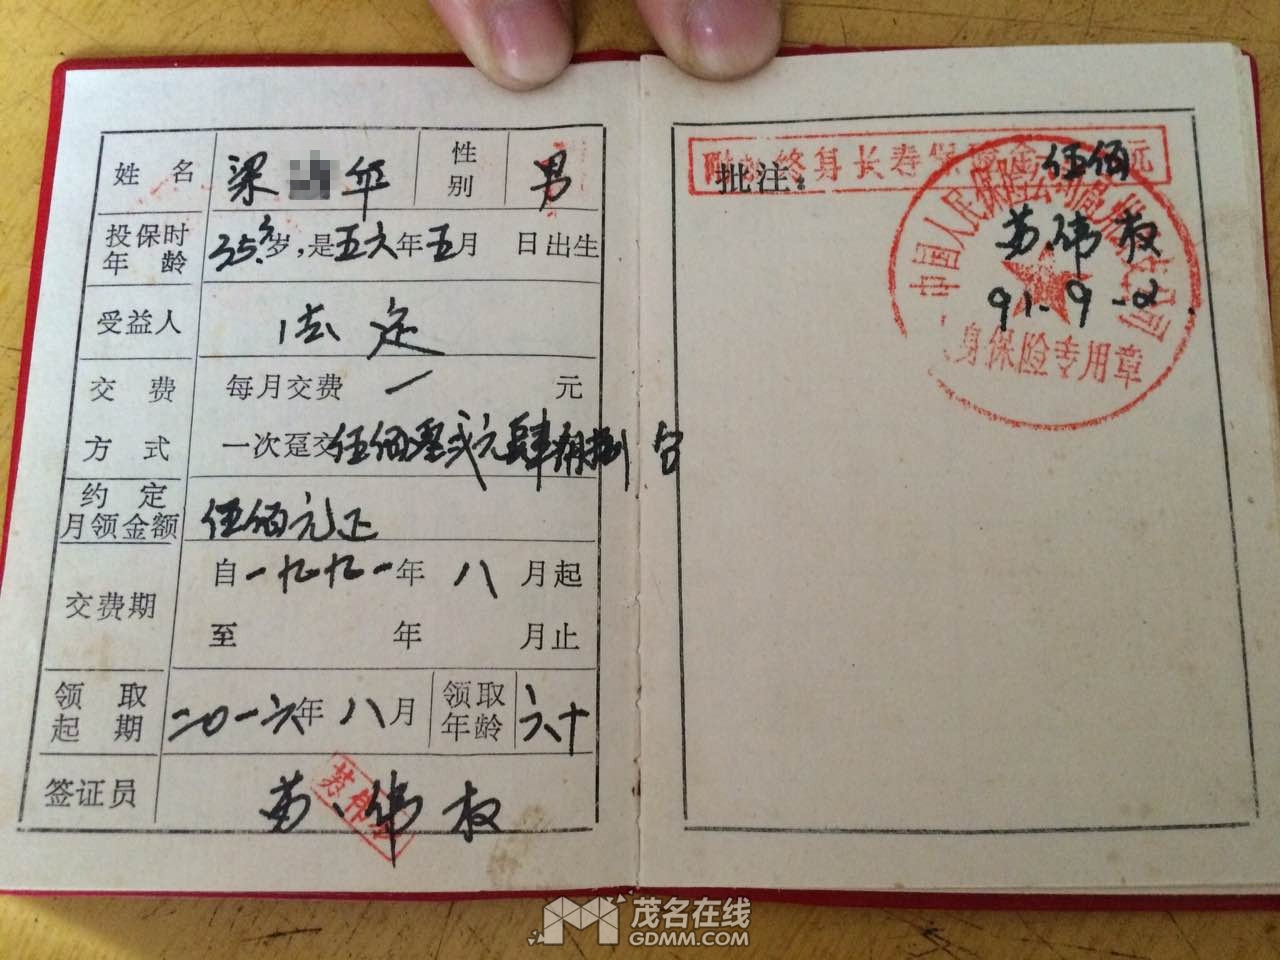 姓 名 梁 华 性别 男
投保时年龄 35岁,是五六年五月 日出生
受益人 法定
交费方式 每月交费 一 元
一次趸交伍佰零贰元肆角捌分
约定月领金额 伍佰元正
交费期 自一九九一年 八 月起
至 年 月止
领取起期 二〇一六年 八月 领取年龄 六十
签证员 苏伟权
批注:
终身长寿保险金 伍佰 元
苏伟权
91.9.2
中国人民保险公司
人身保险专用章
茂名在线
GDMM.COM